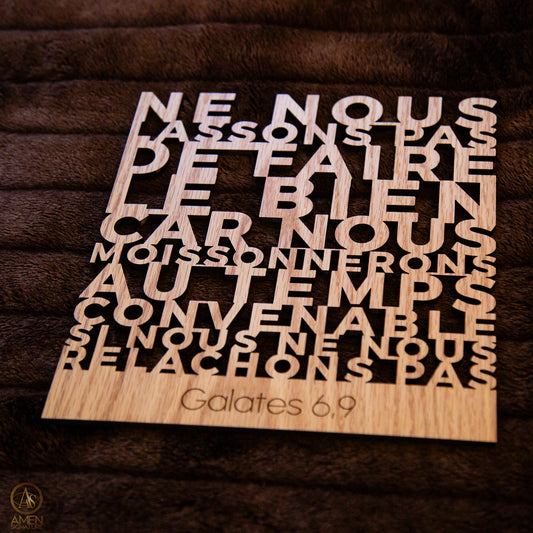 NE NOUS
LASSONS PAS
DE FAIRE
LE BIEN
CAR NOUS
MOISSONNERONS
AU TEMPS
CONVENABLE
SI NOUS NE NOUS
RELACHONS PAS
Galates 6,9
AS
AMEN
SIGNATURE